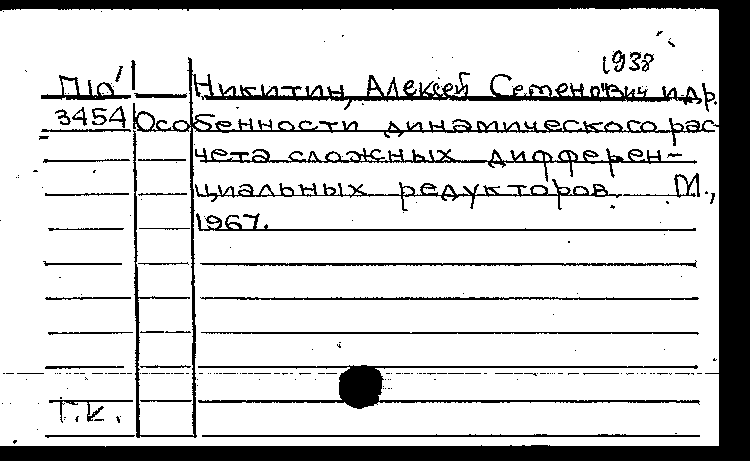 1938
П10' Никитин, Алексей Семенович и др.
3454 Особенности динамического рас-
чета сложных дифферен-
циальных редукторов. М.,
1967.
Г.К.